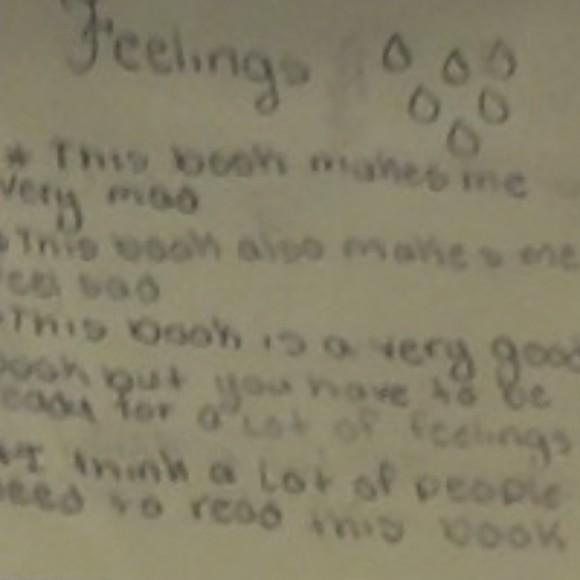 Feelings
* This book makes me
very mad
This book also makes me
feel sad
This book is a very good
book but you have to be
ready for a lot of feelings
*I think a lot of people
need to read this book